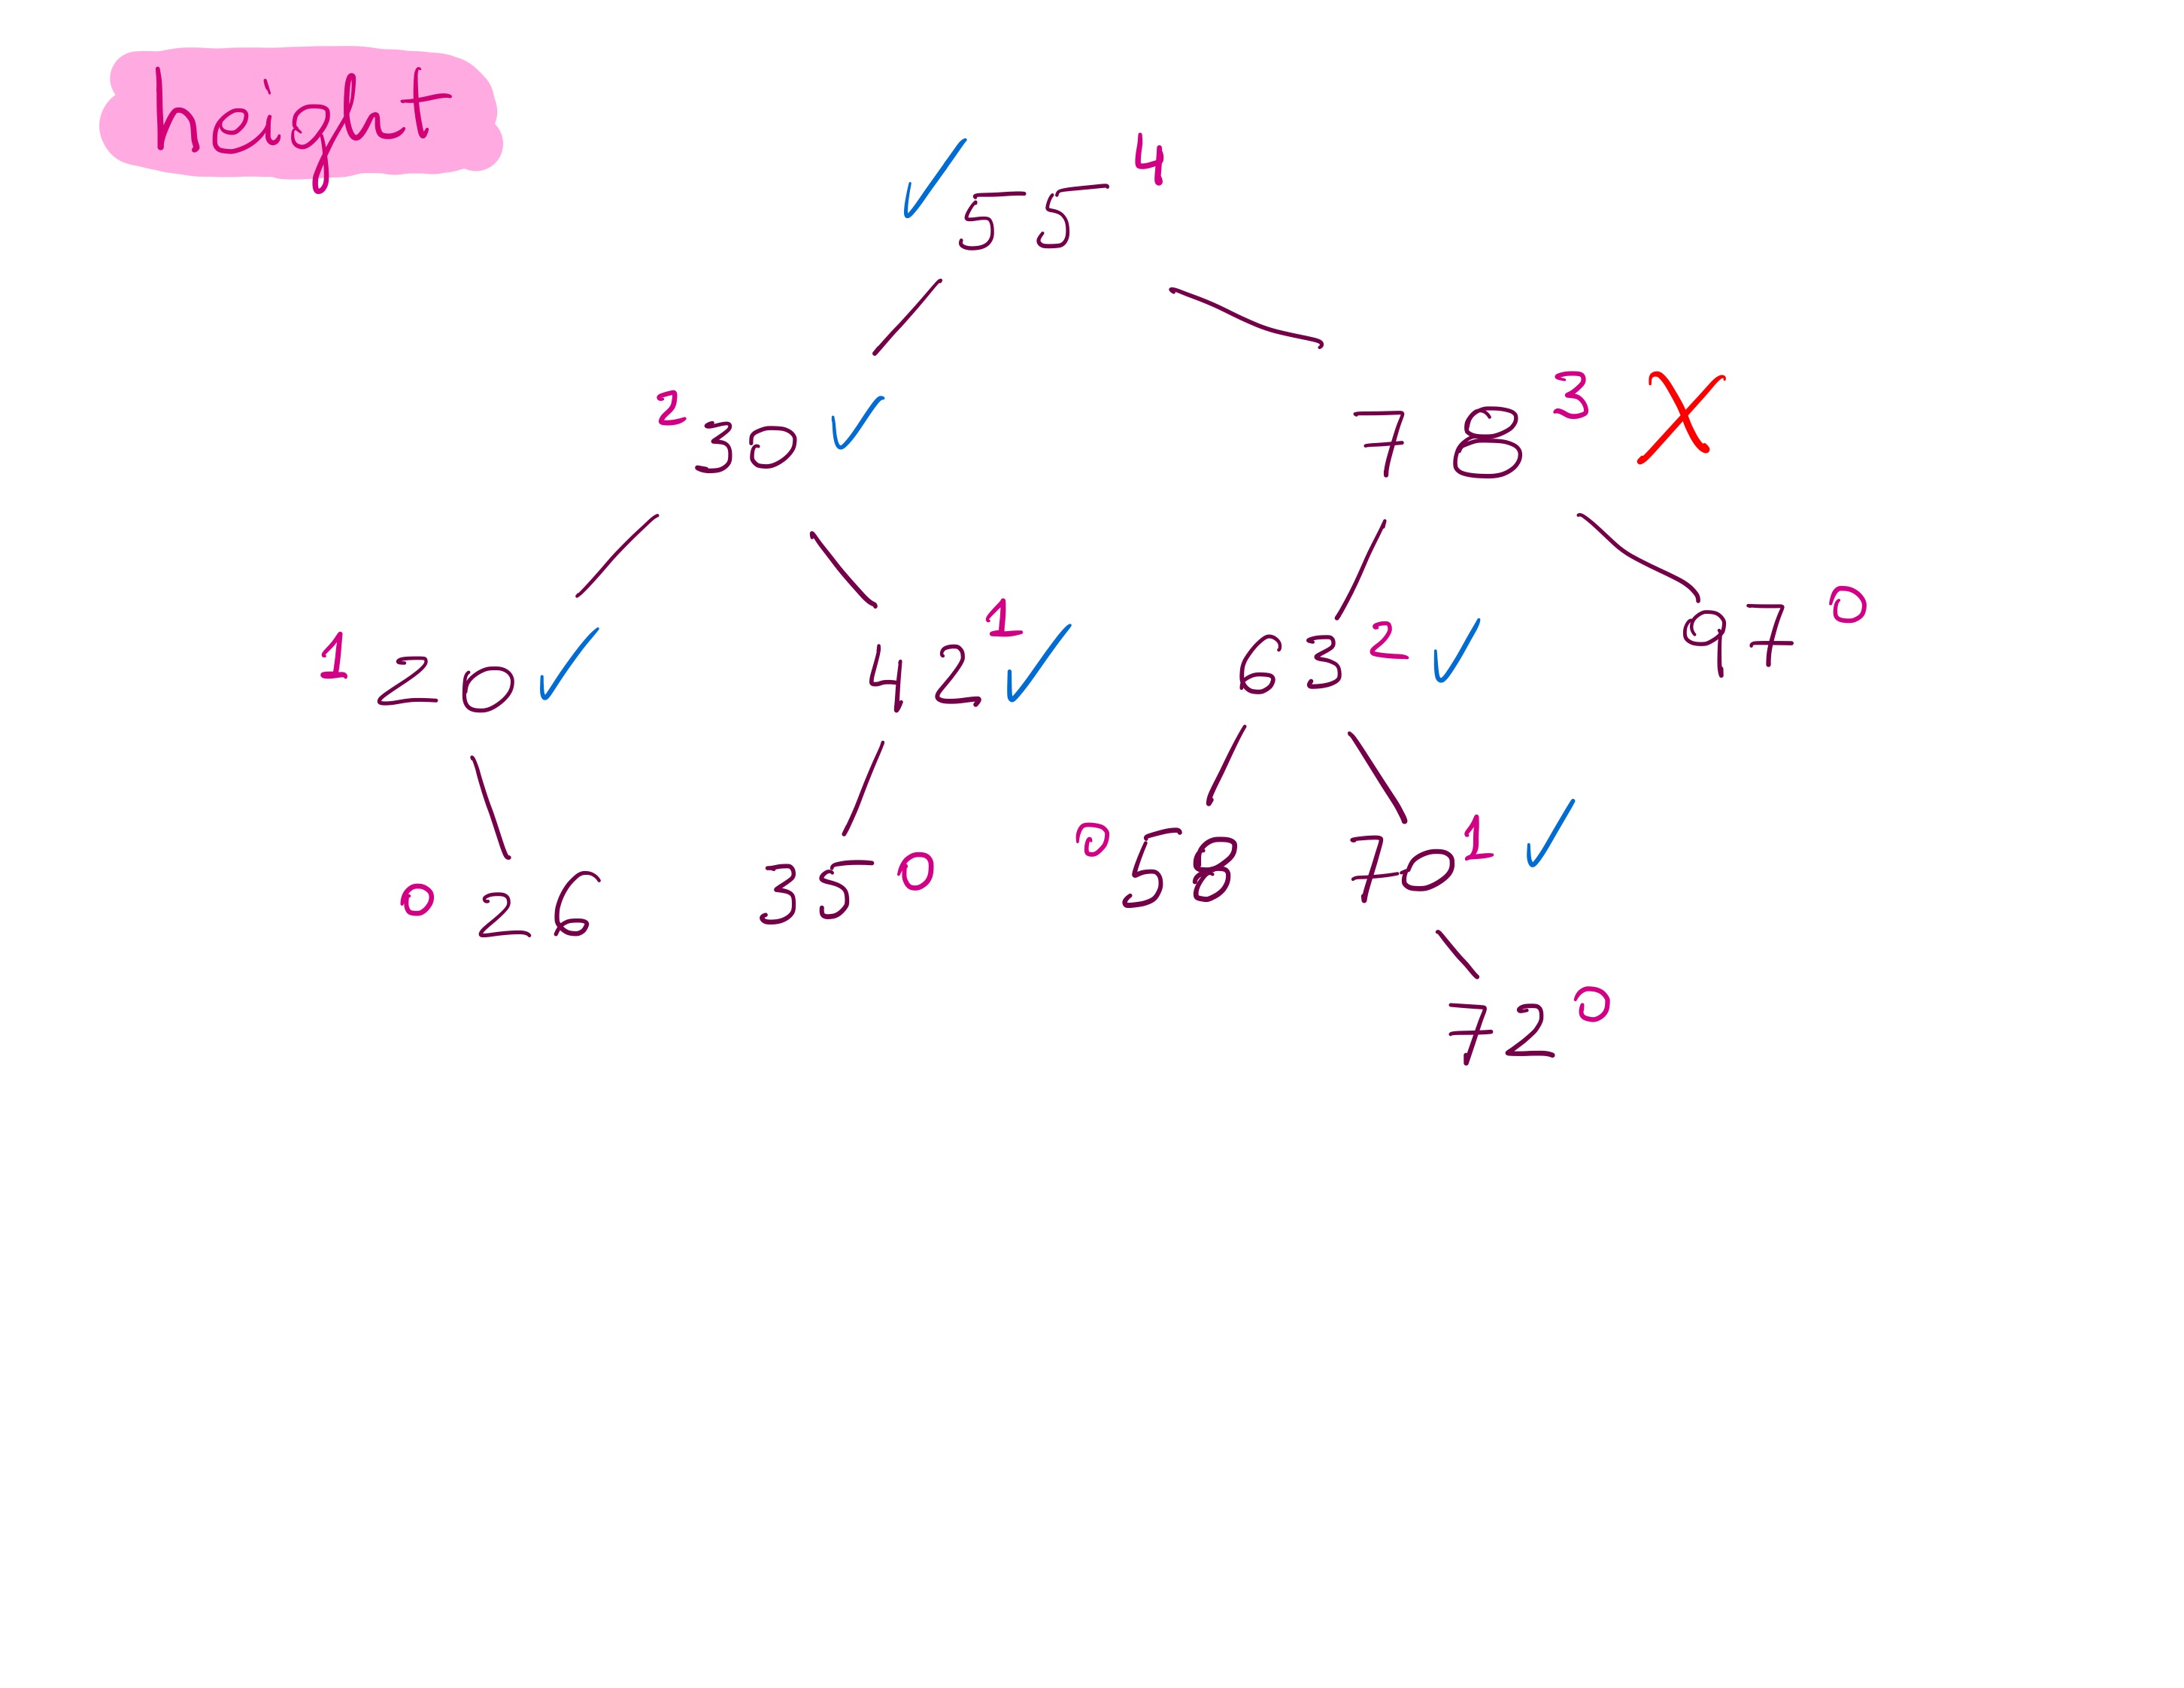 height
55 4
2 30
78 3 X
1 20
42 1
63 2
97 0
0 26
35 0
0 58
70 1
72 0